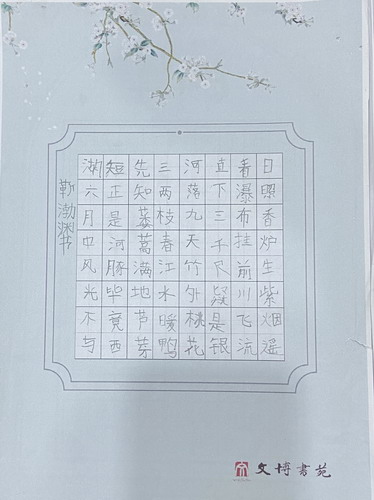 日照香炉生紫烟遥
看瀑布挂前川飞流
直下三千尺疑是银
河落九天竹外桃花
三两枝春江水暖鸭
先知蒌蒿满地节芽
短正是河豚毕竟西
湖六月中风光不与
靳渤渊书
文博書苑